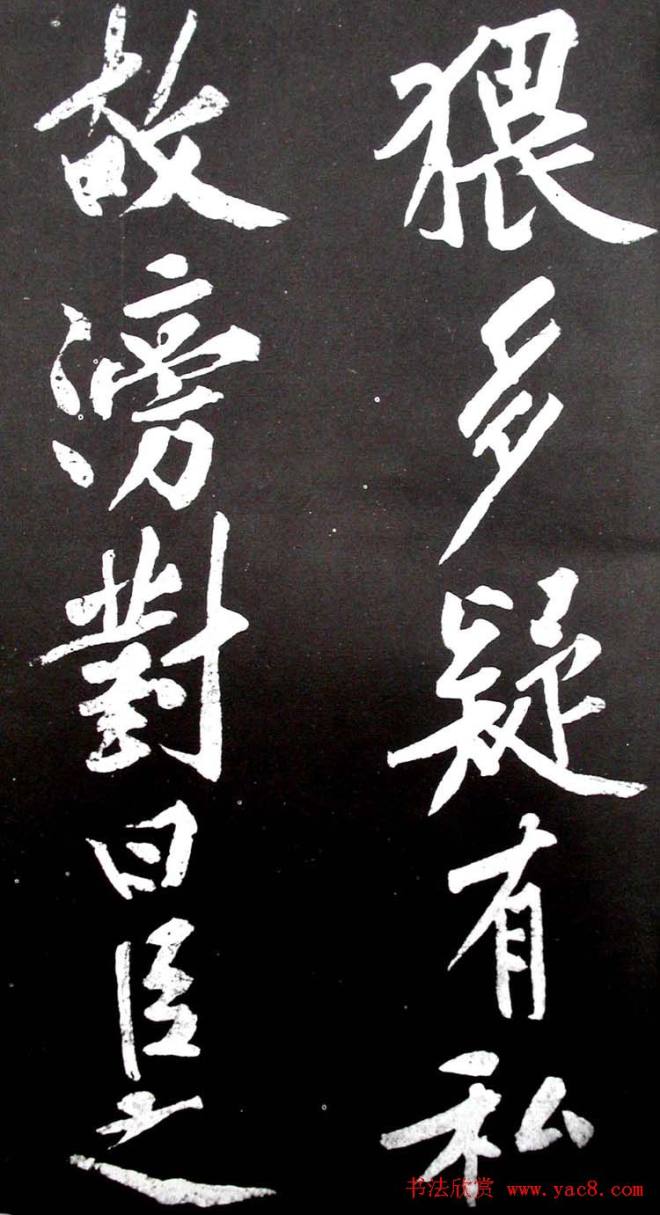 猥多疑有私
故滂對曰臣之
书法欣赏 www.yac8.com